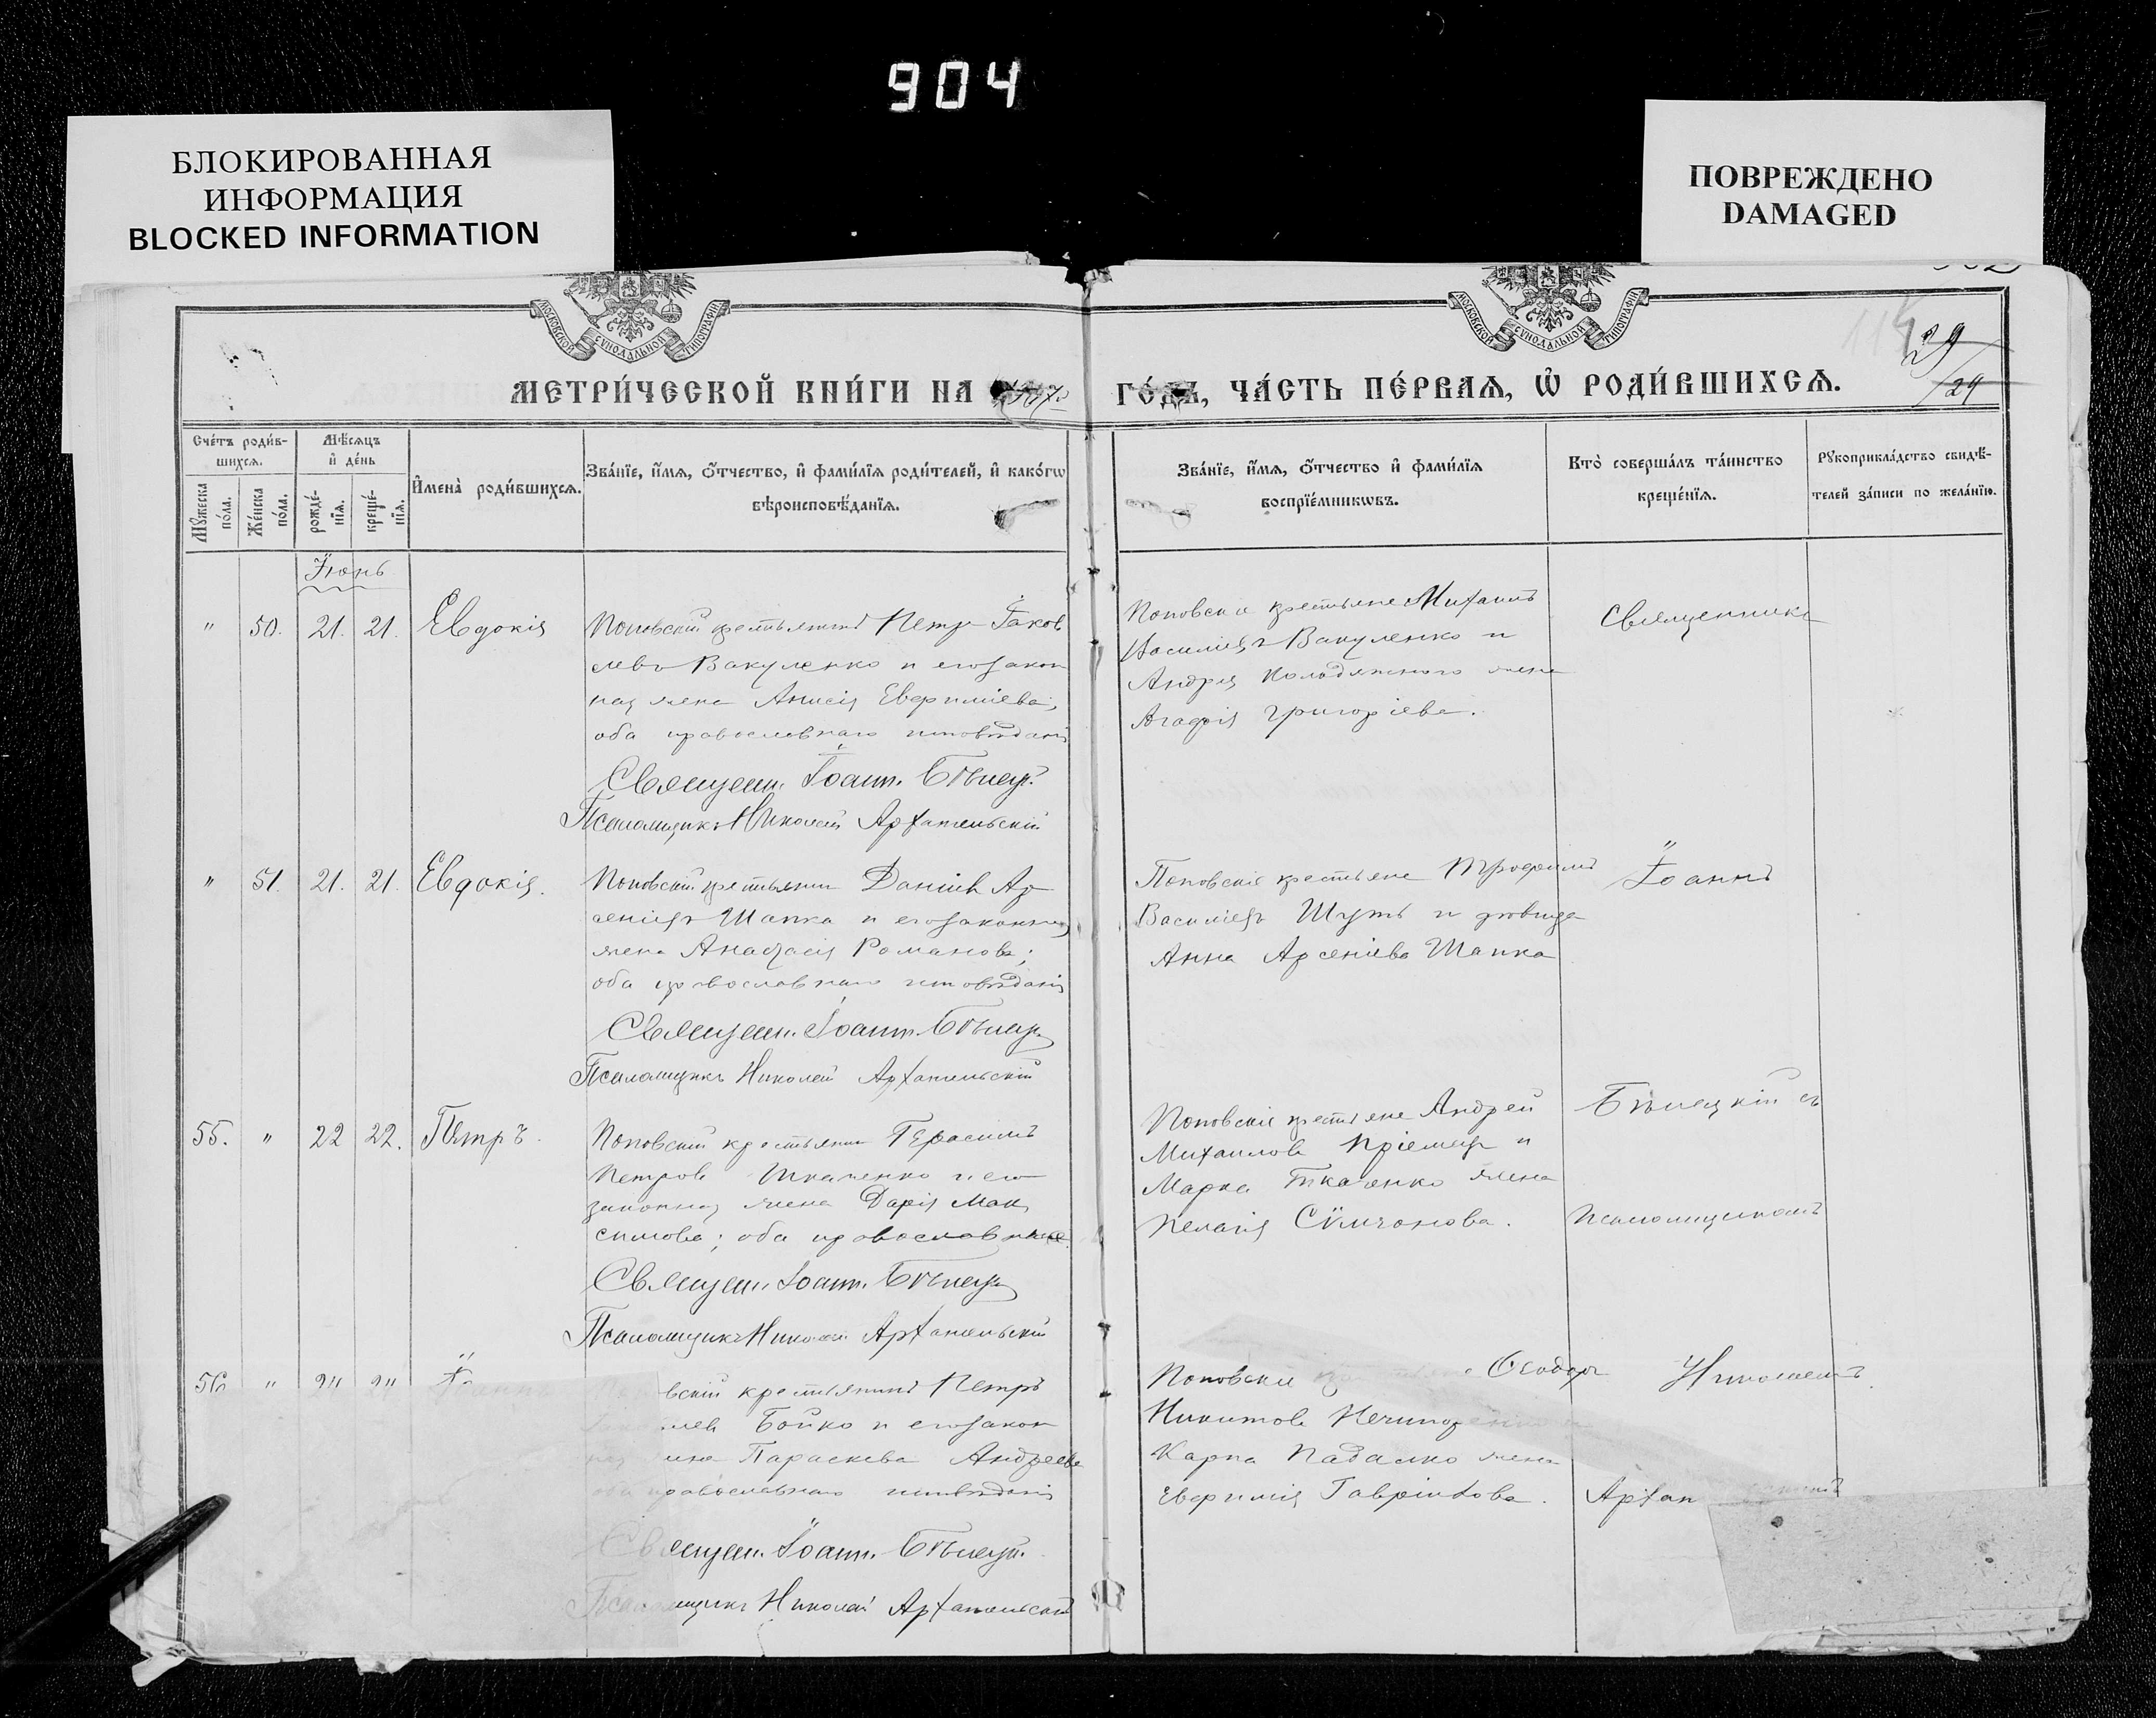 904
БЛОКИРОВАННАЯ
ИНФОРМАЦИЯ
BLOCKED INFORMATION
ПОВРЕЖДЕНО
DAMAGED
МОСКОВСКОЙ СѴНОДАЛЬНОЙ ТИПОГРАФІИ
МОСКОВСКОЙ СѴНОДАЛЬНОЙ ТИПОГРАФІИ
29
/24
МЕТРИ́ЧЕСКОЙ КНИ́ГИ НА
ГО́ДЪ, ЧА́СТЬ ПЕ́РВАЯ, Ѡ҆ РОДИ́ВШИХСЯ.
Сче́тъ роди́в-
шихся.
Мѣ́сяцъ
и҆ де́нь
Мꙋ́жеска
по́ла.
Же́нска
по́ла.
рожде́-
нїя.
креще́-
нїя.
И҆мена̀ роди́вшихся.
Зва́нїе, и҆́мя, ѻ҆́тчество, и҆ фами́лїя роди́телей, и҆ како́гѡ
вѣроисповѣ́данїя.
Зва́нїе, и҆́мя, ѻ҆́тчество и҆ фами́лїя
воспрїе́мникѡвъ.
Кто̀ соверша́лъ та́инство
креще́нїя.
Рꙋкоприкла́дство свидѣ́-
телей за́писи по жела́нїю.
Іюнь
" 50. 21. 21. Евдокія
Поповскій крестьянинъ Петръ Іаков
левъ Вакуленко и его закон
ная жена Анисія Евфиміева;
оба православнаго исповѣданія
Священ. Іоанн. Бѣлецк.
Псаломщикъ Николай Архангельскій
Поповскіе крестьяне Михаилъ
Васильевъ Вакуленко и
Андрея Колодяжного жена
Агафія Григоріева.
Священникъ
" 51. 21. 21. Евдокія.
Поповскій крестьянин Даніил Ар
сеніевъ Шапка и его законная
жена Анастасія Романова;
оба православнаго исповѣданія
Священ. Іоанн. Бѣлецк.
Псаломщикъ Николай Архангельскій
Поповскіе крестьяне Трофимъ
Васильевъ Шуть и дѣвица
Анна Арсеніева Шапка
Іоаннъ
55. " 22 22. Петръ.
Поповскій крестьянин Герасимъ
Петровъ Ткаченко и его
законная жена Дарія Мак
симова; оба православные
Священ. Іоанн. Бѣлецк.
Псаломщикъ Николай Архангельскій
Поповскіе крестьяне Андрей
Михаиловъ Пріемецъ и
Марка Ткаченко жена
Пелагія Сѵмеонова.
Бѣлецкій съ
псаломщикомъ
56 " 24 24
вскій крестьянинъ Петръ
лев Бойко и его закон
жена Параскева Андреева
оба православнаго исповѣданія
Священ. Іоанн. Бѣлецк.
Псаломщикъ Николай Архангельскій
Поповскіе Ѳеодоръ
Никитовъ Нечипоренко и
Карпа Падалко жена
Евфимія Гавріилова.
Николаемъ
Архан